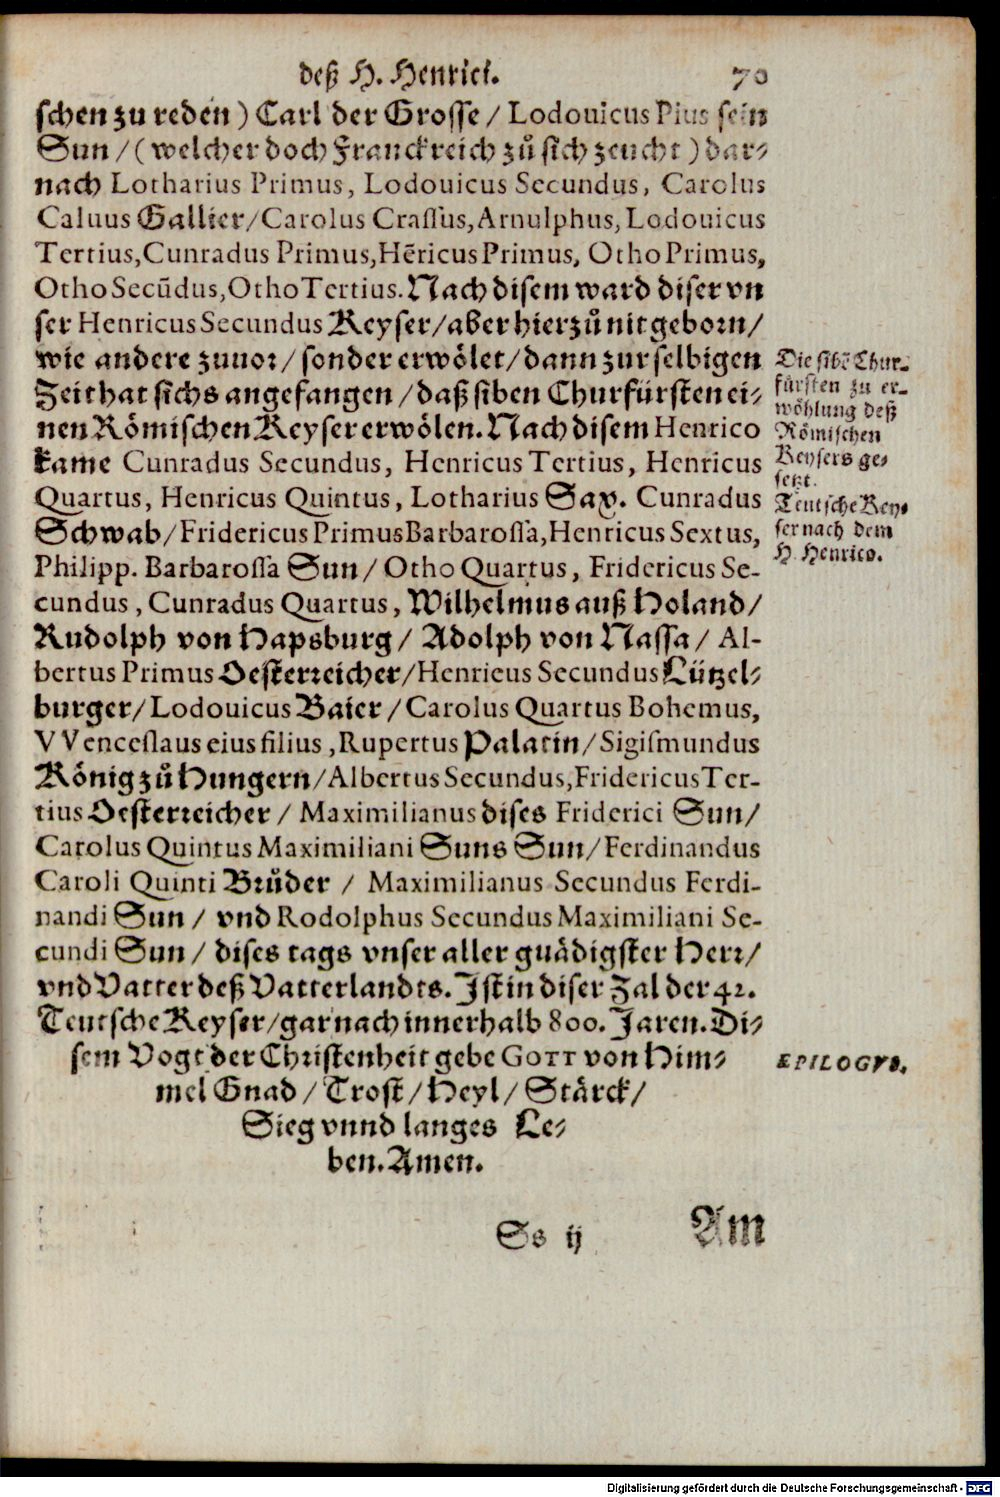 deß H. Henrici. 70
schen zu reden ) Carl der Grosse / Lodouicus Pius sein
Sun / ( welcher doch Franckreich zů sich zeucht ) dar-
nach Lotharius Primus, Lodouicus Secundus, Carolus
Caluus Gallier / Carolus Crassus, Arnulphus, Lodouicus
Tertius, Cunradus Primus, Hēricus Primus, Otho Primus,
Otho Secūdus, Otho Tertius. Nach disem ward diser vn
ser Henricus Secundus Keyser / aber hierzů nit geborn /
wie andere zuuor / sonder erwölet / dann zur selbigen
Zeit hat sichs angefangen / daß siben Churfürsten ei-
nen Römischen Keyser erwölen. Nach disem Henrico
kame Cunradus Secundus, Henricus Tertius, Henricus
Quartus, Henricus Quintus, Lotharius Sax. Cunradus
Schwab / Fridericus Primus Barbarossa, Henricus Sextus,
Philipp. Barbarossa Sun / Otho Quartus, Fridericus Se-
cundus, Cunradus Quartus, Wilhelmus auß Holand /
Rudolph von Hapsburg / Adolph von Nassa / Al-
bertus Primus Oesterreicher / Henricus Secundus Lützel-
burger / Lodouicus Baier / Carolus Quartus Bohemus,
VVenceslaus eius filius, Rupertus Palatin / Sigismundus
König zů Hungern / Albertus Secundus, Fridericus Ter-
tius Oesterreicher / Maximilianus dises Friderici Sun /
Carolus Quintus Maximiliani Suns Sun / Ferdinandus
Caroli Quinti Brůder / Maximilianus Secundus Ferdi-
nandi Sun / vnd Rodolphus Secundus Maximiliani Se-
cundi Sun / dises tags vnser aller gnädigster Herr /
vnd Vatter deß Vatterlandts. Ist in diser Zal der 42.
Teutsche Keyser / gar nach innerhalb 800. Jaren. Di-
sem Vogt der Christenheit gebe GOTT von Him-
mel Gnad / Trost / Heyl / Stärck /
Sieg vnnd langes Le-
ben. Amen.
Die sibē Chur-
fürsten zu er-
wöhlung deß
Römischen
Keysers ge-
setzt.
Teutsche Key-
ser nach dem
H. Henrico.
EPILOGVS.
Ss ij Am
Digitalisierung gefördert durch die Deutsche Forschungsgemeinschaft - DFG